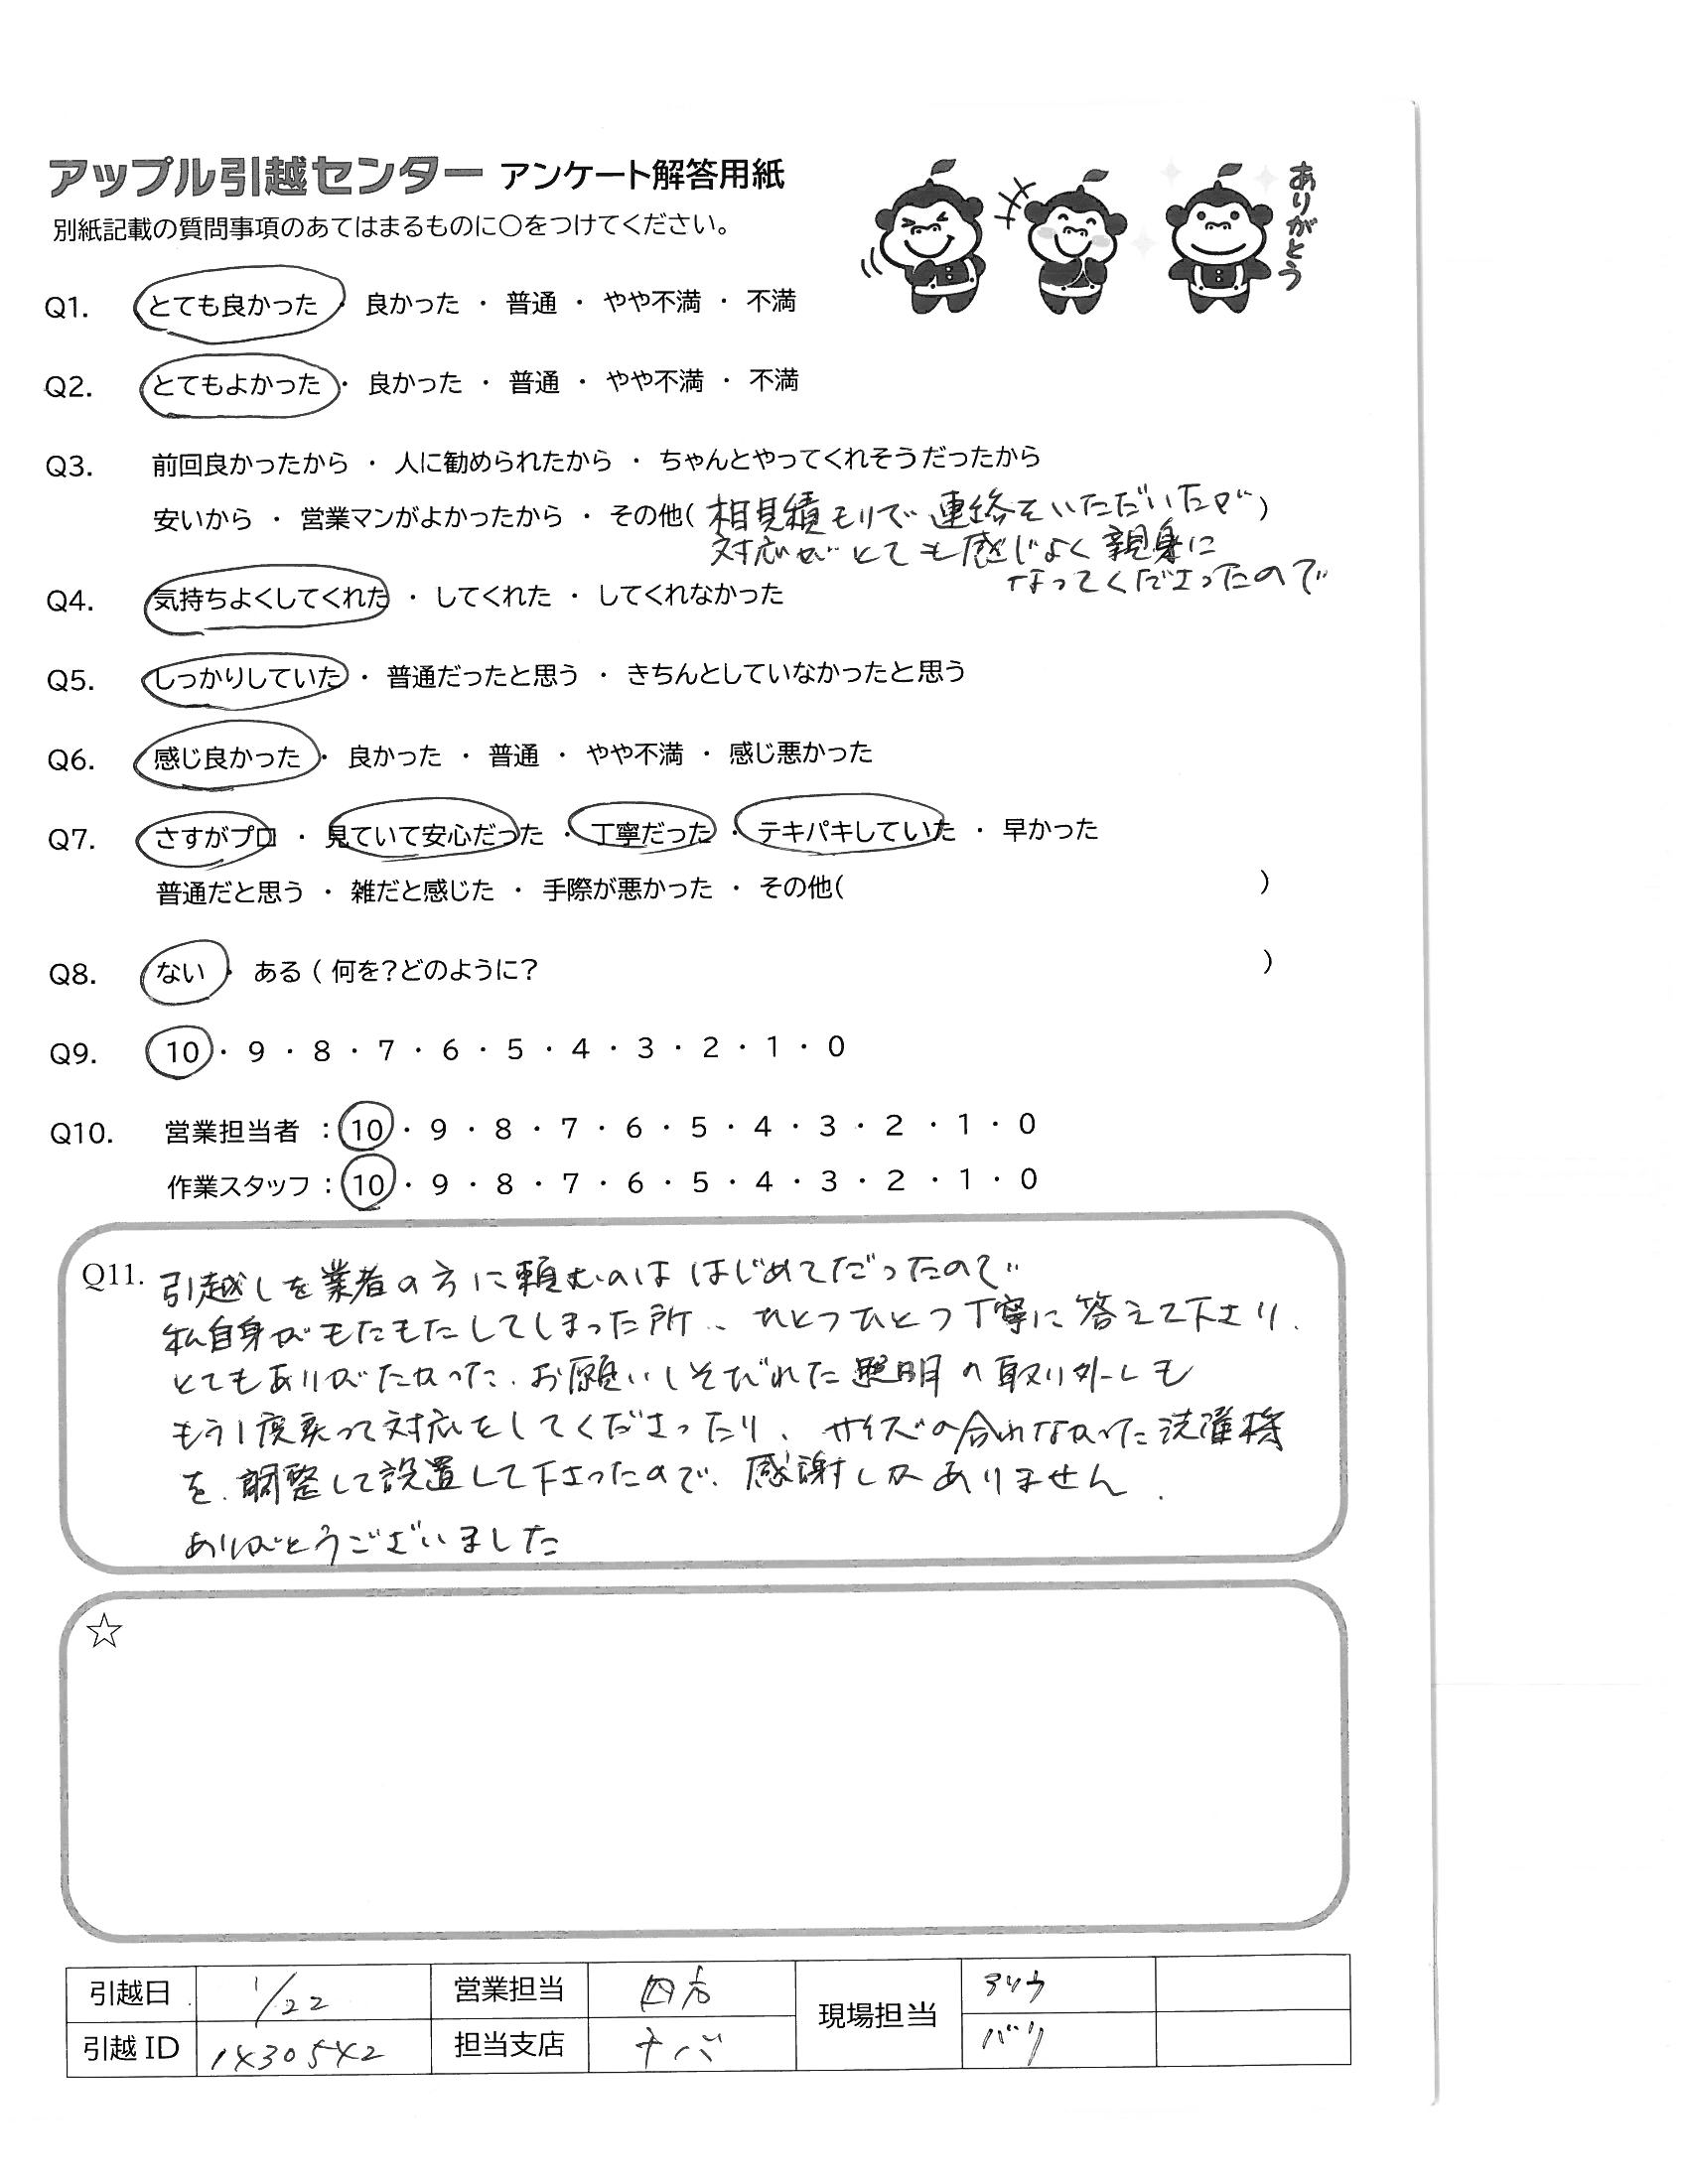 アップル引越センター アンケート解答用紙
別紙記載の質問事項のあてはまるものに○をつけてください。
ありがとう
Q1. とても良かった ・ 良かった ・ 普通 ・ やや不満 ・ 不満
Q2. とてもよかった ・ 良かった ・ 普通 ・ やや不満 ・ 不満
Q3. 前回良かったから ・ 人に勧められたから ・ ちゃんとやってくれそうだったから
安いから ・ 営業マンがよかったから ・ その他( 相見積もりで連絡をいただいたが )
対応がとても感じよく親身に
なってくださったので
Q4. 気持ちよくしてくれた ・ してくれた ・ してくれなかった
Q5. しっかりしていた ・ 普通だったと思う ・ きちんとしていなかったと思う
Q6. 感じ良かった ・ 良かった ・ 普通 ・ やや不満 ・ 感じ悪かった
Q7. さすがプロ ・ 見ていて安心だった ・ 丁寧だった ・ テキパキしていた ・ 早かった
普通だと思う ・ 雑だと感じた ・ 手際が悪かった ・ その他( )
Q8. ない ・ ある ( 何を?どのように? )
Q9. 10 ・ 9 ・ 8 ・ 7 ・ 6 ・ 5 ・ 4 ・ 3 ・ 2 ・ 1 ・ 0
Q10. 営業担当者 : 10 ・ 9 ・ 8 ・ 7 ・ 6 ・ 5 ・ 4 ・ 3 ・ 2 ・ 1 ・ 0
作業スタッフ : 10 ・ 9 ・ 8 ・ 7 ・ 6 ・ 5 ・ 4 ・ 3 ・ 2 ・ 1 ・ 0
Q11. 引越しを業者の方に頼むのははじめてだったので
私自身がもたもたしてしまった所、ひとつひとつ丁寧に答えて下さり、
とてもありがたかった。お願いしそびれた照明の取り外しも
もう1度戻って対応をしてくださったり、サイズの合わなかった洗濯機
を、調整して設置して下さったので、感謝しかありません。
ありがとうございました
☆
引越日 1/22 営業担当 現場担当 アソウ
引越ID 1430542 担当支店 チバ バツ